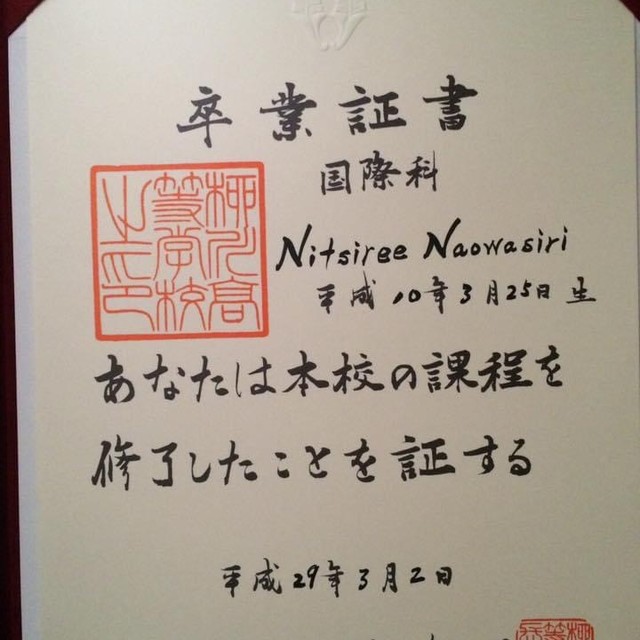 卒業証書
国際科
Nitsiree Naowasiri
平成10年3月25日生
あなたは本校の課程を
修了したことを証する
平成29年3月2日